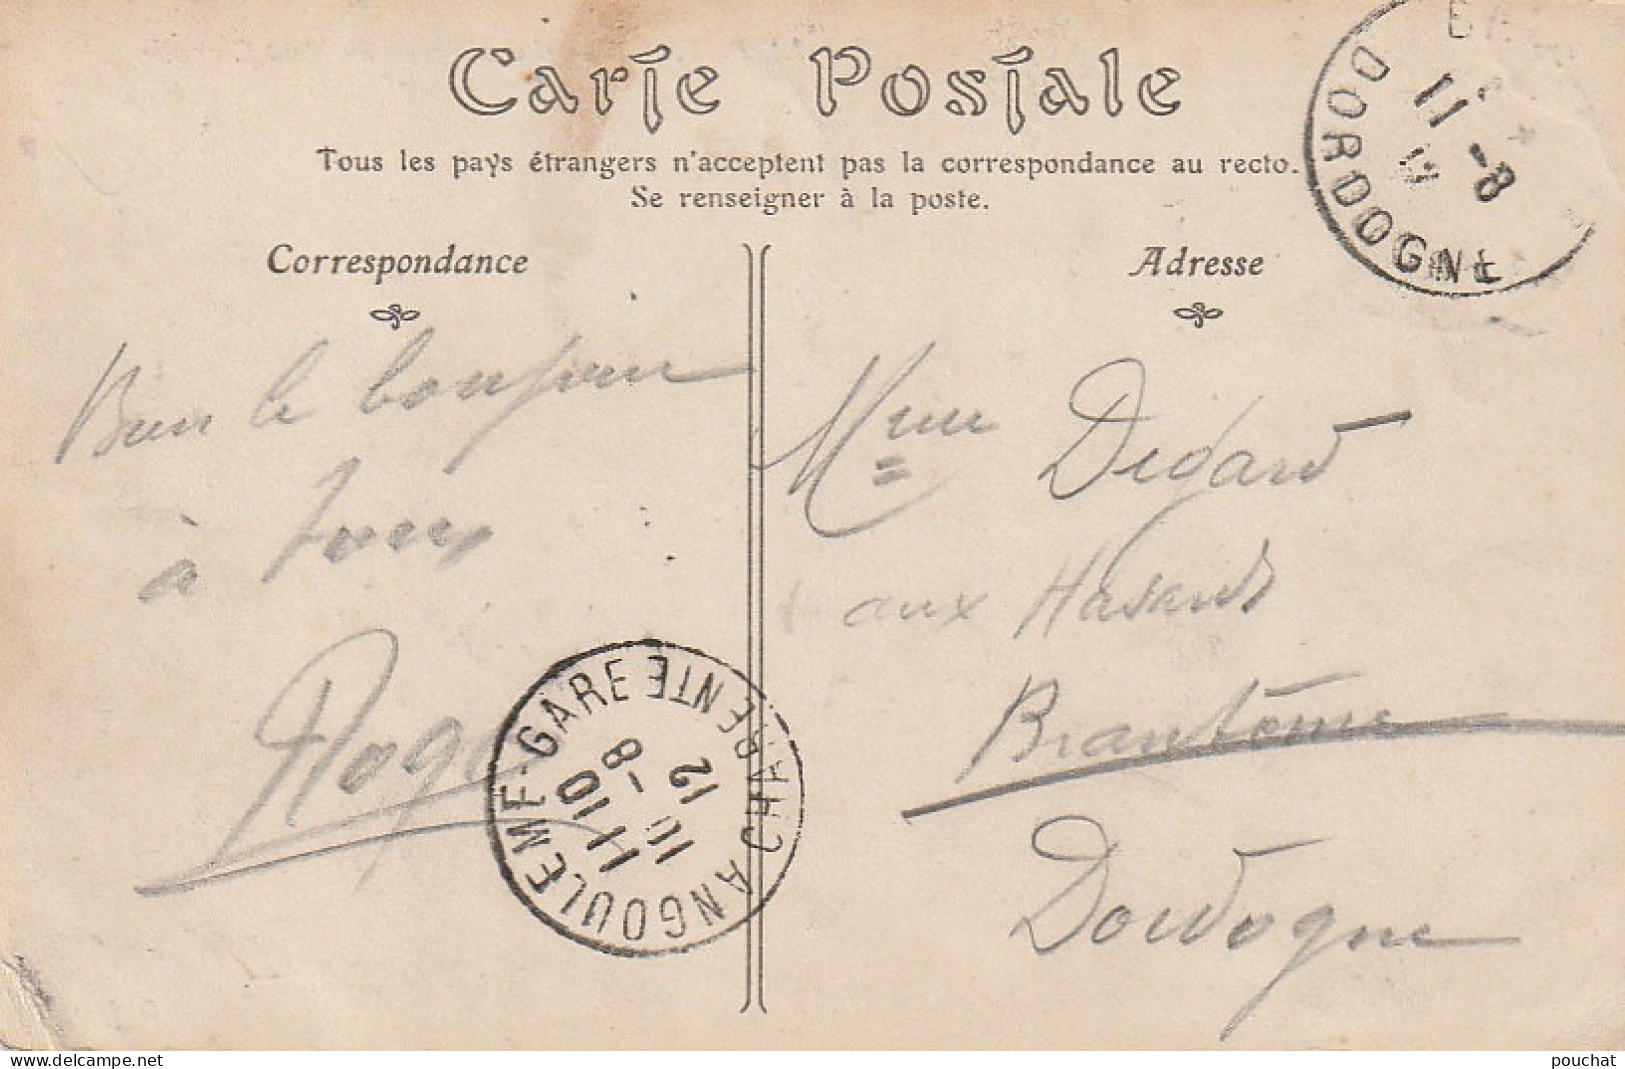 Carte Postale
Tous les pays étrangers n'acceptent pas la correspondance au recto.
Se renseigner à la poste.
Correspondance
Adresse
Bien le bonjour
à tous
Roger
Mme Degard
aux Hasards
Brantôme
Dordogne
DORDOGNE
11 -8
ANGOULEME-GARE CHARENTE
11 H 10
11 - 8
12
www.delcampe.net
pouchat